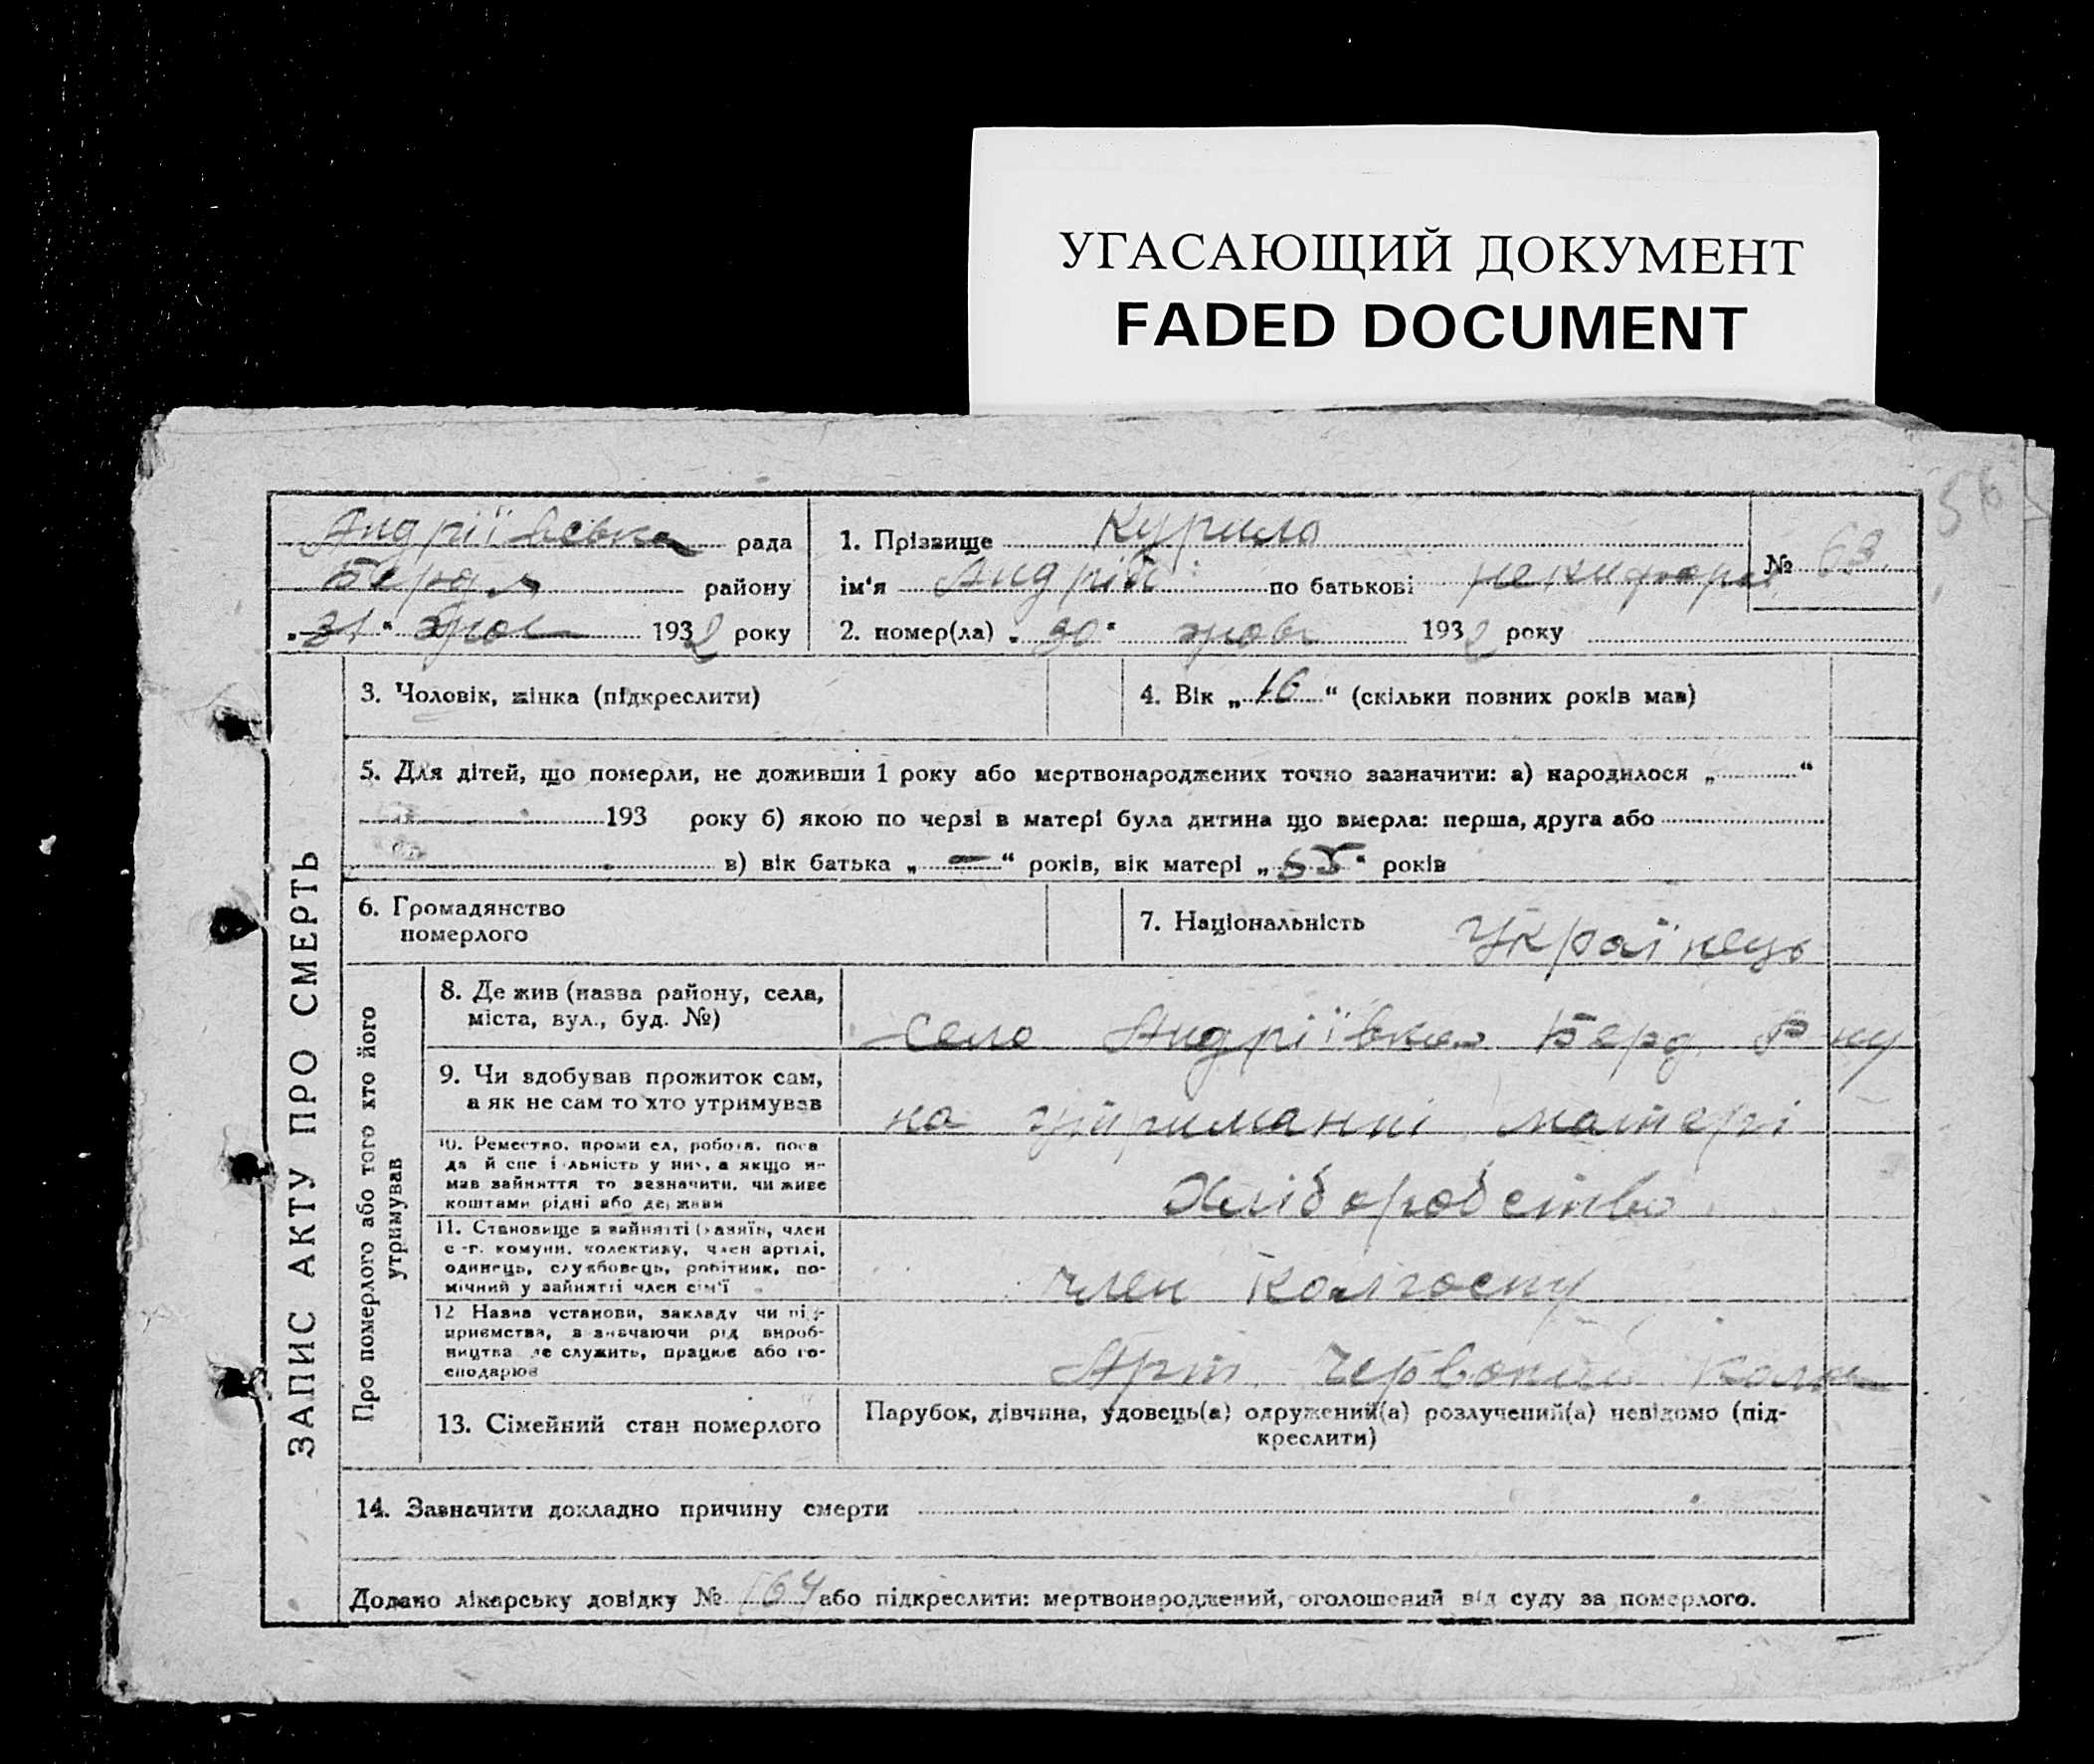 УГАСАЮЩИЙ ДОКУМЕНТ
FADED DOCUMENT
56
Андріївська рада
Берд району
„31“ 1932 року
1. Прізвище Курило
ім'я Андрій по батькові
№ 63.
2. помер(ла) „30“ 1932 року
ЗАПИС АКТУ ПРО СМЕРТЬ
3. Чоловік, жінка (підкреслити)
4. Вік „16“ (скільки повних років мав)
5. Для дітей, що померли, не доживши 1 року або мертвонароджених точно зазначити: а) народилося „ “
193 року б) якою по черзі в матері була дитина що вмерла: перша, друга або
в) вік батька „–“ років, вік матері „55“ років
6. Громадянство
померлого
7. Національність Українець
Про померлого або того хто його
утримував
8. Де жив (назва району, села,
міста, вул., буд. №)
село Андріївка Берд. Р-ну
9. Чи здобував прожиток сам,
а як не сам то хто утримував
на утриманні матері
10. Ремество, промисел, робота, поса
да й спеціяльність у ній, а якщо не
мав зайняття то зазначити, чи живе
коштами рідні або держави
Хліборобство
11. Становище в зайнятті (хазяїн, член
с-г. комуни, колективу, член артілі,
одинець, службовець, робітник, по-
мічний у зайнятті член сім'ї
член колгоспу
12 Назва установи, закладу чи під-
приємства, зазначаючи рід вироб-
ництва де служить, працює або го-
сподарює
Арт. Червоний
13. Сімейний стан померлого
Парубок, дівчина, удовець(а) одружений(а) розлучений(а) невідомо (під-
креслити)
14. Зазначити докладно причину смерти
Додано лікарську довідку № 164 або підкреслити: мертвонароджений, оголошений від суду за померлого.